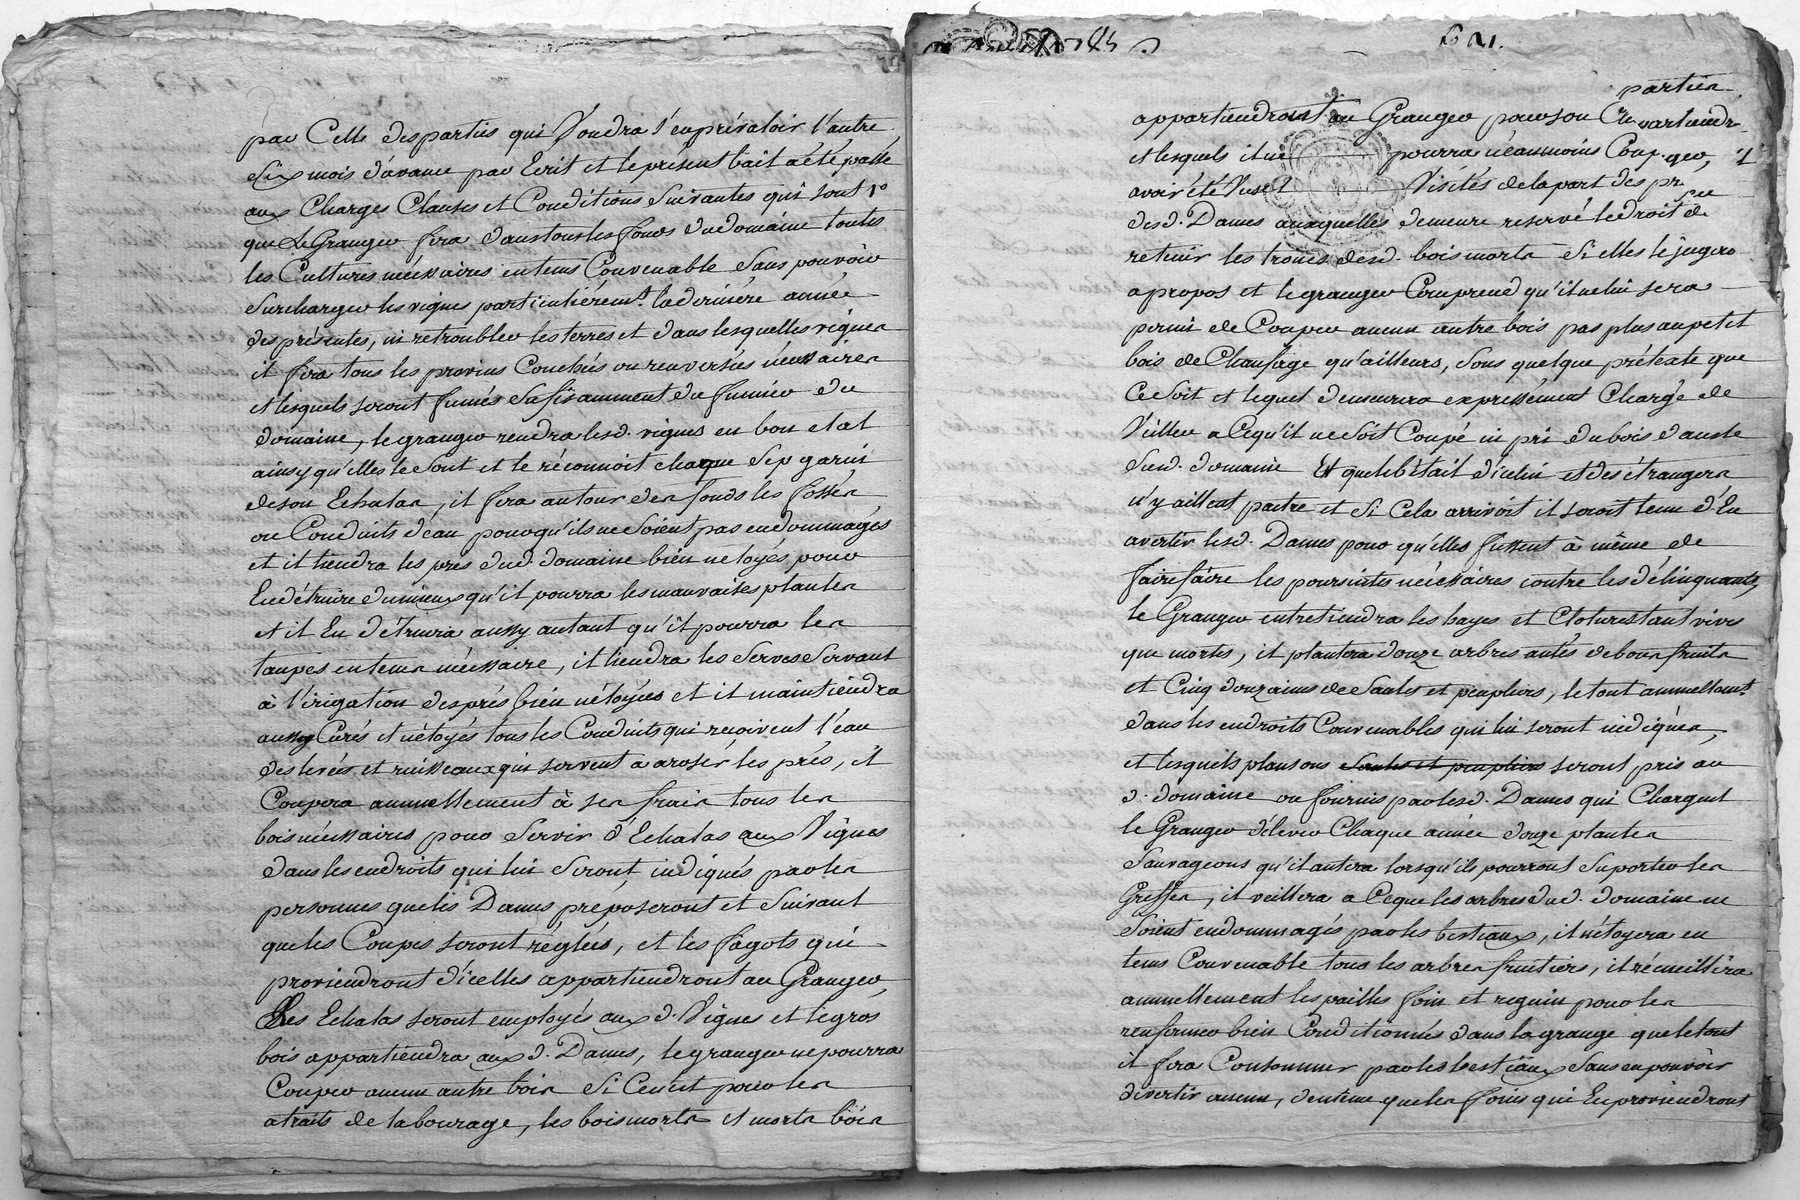 par Celle des parties qui Voudra S'en prévaloir l'autre
Six mois d'avance par Ecrit et le présent bail a été passé
aux Charges Clauses et Conditions Suivantes qui sont 1°
que Le Granger fera dans tous les fonds du domaine toutes
les Cultures nécessaires en tems Convenable Sans pouvoir
Surcharger les vignes particuliérem.t la derniére année
des présentes, ni retroubler les terres et dans lesquelles vignes
il fera tous les provins Couchés ou renversées nécessaires
et lesquels seront fumés Sufisamment du fumier du
domaine, le granger rendra lesd. vignes en bon etat
ainsy qu'elles le Sont et le réconnoit chaque Sep garni
de son Echalas, il fera autour des fonds les fossés
ou Conduits d'eau pour qu'ils ne Soient pas endommagés
et il tiendra les prés dud. domaine bien netoyés pour
En détruire du mieux qu'il pourra les mauvaises plantes
et il En détruira aussy autant qu'il pourra les
taupes en tems nécessaire, il tiendra les Serves Servant
à l'irigation des prés bien nétoyées et il maintiendra
aussy Curés et nétoyés tous les Conduits qui reçoivent l'eau
des levées et ruisseaux qui servent a aroser les prés, il
Coupera annuellement à ses frais tous les
bois nécessaires pour Servir d'Echalas aux Vignes
dans les endroits qui lui Seront indiqués par les
personnes que les Dames préposeront et Suivant
que les Coupes seront réglées, et les fagots qui
proviendront d'icelles appartiendront au Granger,
Les Echalas seront employés aux d. Vignes et le gros
bois appartiendra aux d. Dames, le granger ne pourra
Couper aucun autre bois Si Ce n'est pour les
atraits de labourage, les bois morts et morts bois
partien
appartiendront au Granger pour son
et lesquels il ne pourra néanmoins Couper,
avoir été Visités de la part des
desd. Dames auxquelles demeure reservé le droit de
retenir les troncs desd. bois morts Si elles le jugero
a propos et le granger Comprend qu'il ne lui sera
permi de Couper aucun autre bois pas plus au petit
bois de Chaufage qu'ailleurs, Sous quelque prétexte que
Ce Soit et lequel demeurera expressément Chargé de
Veiller a Ce qu'il ne Soit Coupé ni pri du bois dans le
Susd. domaine Et que le bétail d'icelui et des étrangers
n'y aillent paitre et Si Cela arrivoit il seroit tenu d'En
avertir lesd. Dames pour qu'elles fussent à même de
faire faire les poursuites nécessaires contre les délinquants,
le Granger entretiendra les hayes et Clotures tant vives
que mortes, il plantera douze arbres antés de bons fruits
et Cinq douzaines de Saules et peupliers, le tout annuellem.t
dans les endroits Convenables qui lui seront indiqués,
et lesquels plansons Saules et peupliers seront pris au
d. domaine ou fournis par lesd. Dames qui Chargent
le Granger d'élever Chaque année douze plantes
Sauvageons qu'il antera lorsqu'ils pourront Suporter les
Greffes, il veillera a Ce que les arbres dud. domaine ne
Soient endommagés par les bestiaux, il nétoyera en
tems Convenable tous les arbres fruitiers, il récueillira
annuellement les pailles foin et reguin pour les
renfermer bien Conditionnés dans la grange que le tout
il fera Consommer par les bestiaux Sans en pouvoir
divertir aucun, dentenu que les foins qui En proviendront